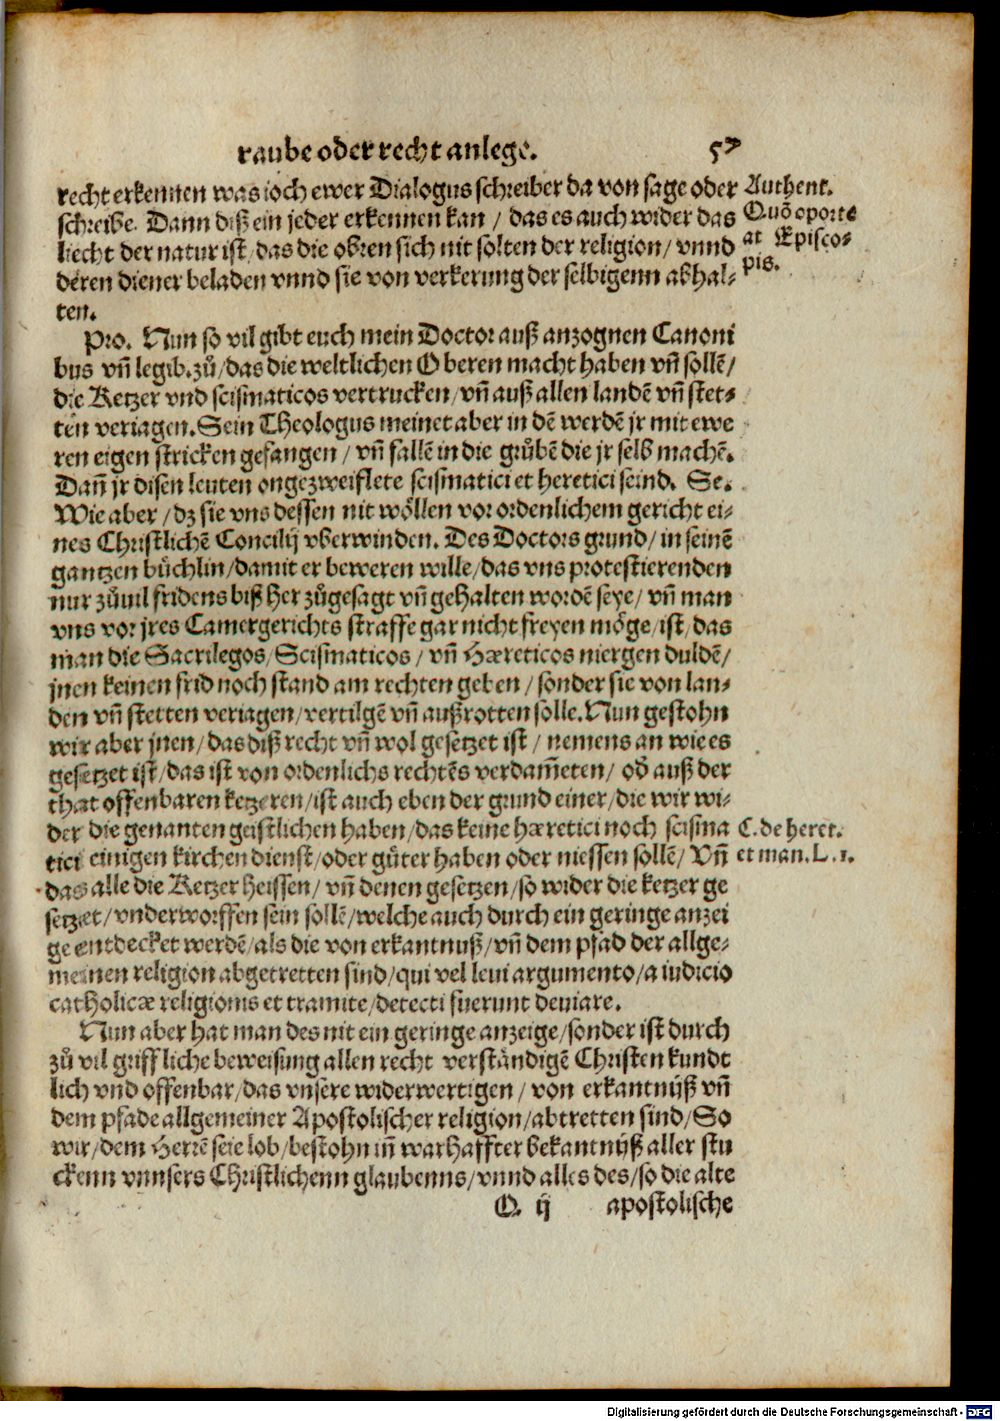 raube oder recht anlege. 57
recht erkennen was ioch ewer Dialogus schreiber da von sage oder
schreibe. Dann diß ein jeder erkennen kan / das es auch wider das
liecht der natur ist / das die obren sich nit solten der religion / vnnd
deren diener beladen vnnd sie von verkerung der selbigenn abhal-
ten.
Authent.
Quõ oporte
at Episco-
pis.
Pro. Nun so vil gibt euch mein Doctor auß anzognen Canoni
bus vñ legib. zů / das die weltlichen Oberen macht haben vñ sollẽ /
die Ketzer vnd scismaticos vertrucken / vñ auß allen landẽ vñ stet-
ten veriagen. Sein Theologus meinet aber in dẽ werdẽ jr mit ewe
ren eigen stricken gefangen / vñ fallẽ in die grůbẽ die jr selb machẽ.
Dañ jr disen leuten ongezweiflete scismatici et heretici seind. Se.
Wie aber / dz sie vns dessen nit wöllen vor ordenlichem gericht ei-
nes Christlichẽ Concilij vberwinden. Des Doctors grund / in seinẽ
gantzen bůchlin / damit er beweren wille / das vns protestierenden
nur zůuil fridens biß her zůgesagt vñ gehalten wordẽ seye / vñ man
vns vor jres Camergerichts straffe gar nicht freyen möge / ist / das
man die Sacrilegos / Scismaticos / vñ Hæreticos niergen duldẽ /
jnen keinen frid noch stand am rechten geben / sonder sie von lan-
den vñ stetten veriagen / vertilgẽ vñ außrotten solle. Nun gestohn
wir aber jnen / das diß recht vñ wol gesetzet ist / nemens an wie es
gesetzet ist / das ist von ordenlichs rechtẽs verdam̃eten / od̃ auß der
that offenbaren ketzeren / ist auch eben der grund einer / die wir wi-
der die genanten geistlichen haben / das keine hæretici noch scisma
tici einigen kirchen dienst / oder gůter haben oder niessen sollẽ / Vñ
C. de heret.
et man. L. 1.
das alle die Ketzer heissen / vñ denen gesetzen / so wider die ketzer ge
setzet / vnderworffen sein sollẽ / welche auch durch ein geringe anzei
ge entdecket werdẽ / als die von erkantnuß / vñ dem pfad der allge-
meinen religion abgetretten sind / qui vel leui argumento / a iudicio
catholicæ religionis et tramite / detecti fuerunt deuiare.
Nun aber hat man des nit ein geringe anzeige / sonder ist durch
zů vil griffliche beweisung allen recht verständigẽ Christen kundt
lich vnd offenbar / das vnsere widerwertigen / von erkantnÿß vñ
dem pfade allgemeiner Apostolischer religion / abtretten sind / So
wir / dem Herrẽ seie lob / bestohn iñ warhaffter bekantnÿß aller stu
ckenn vnnsers Christlichenn glaubenns / vnnd alles des / so die alte
Q. ij apostolische
Digitalisierung gefördert durch die Deutsche Forschungsgemeinschaft - DFG